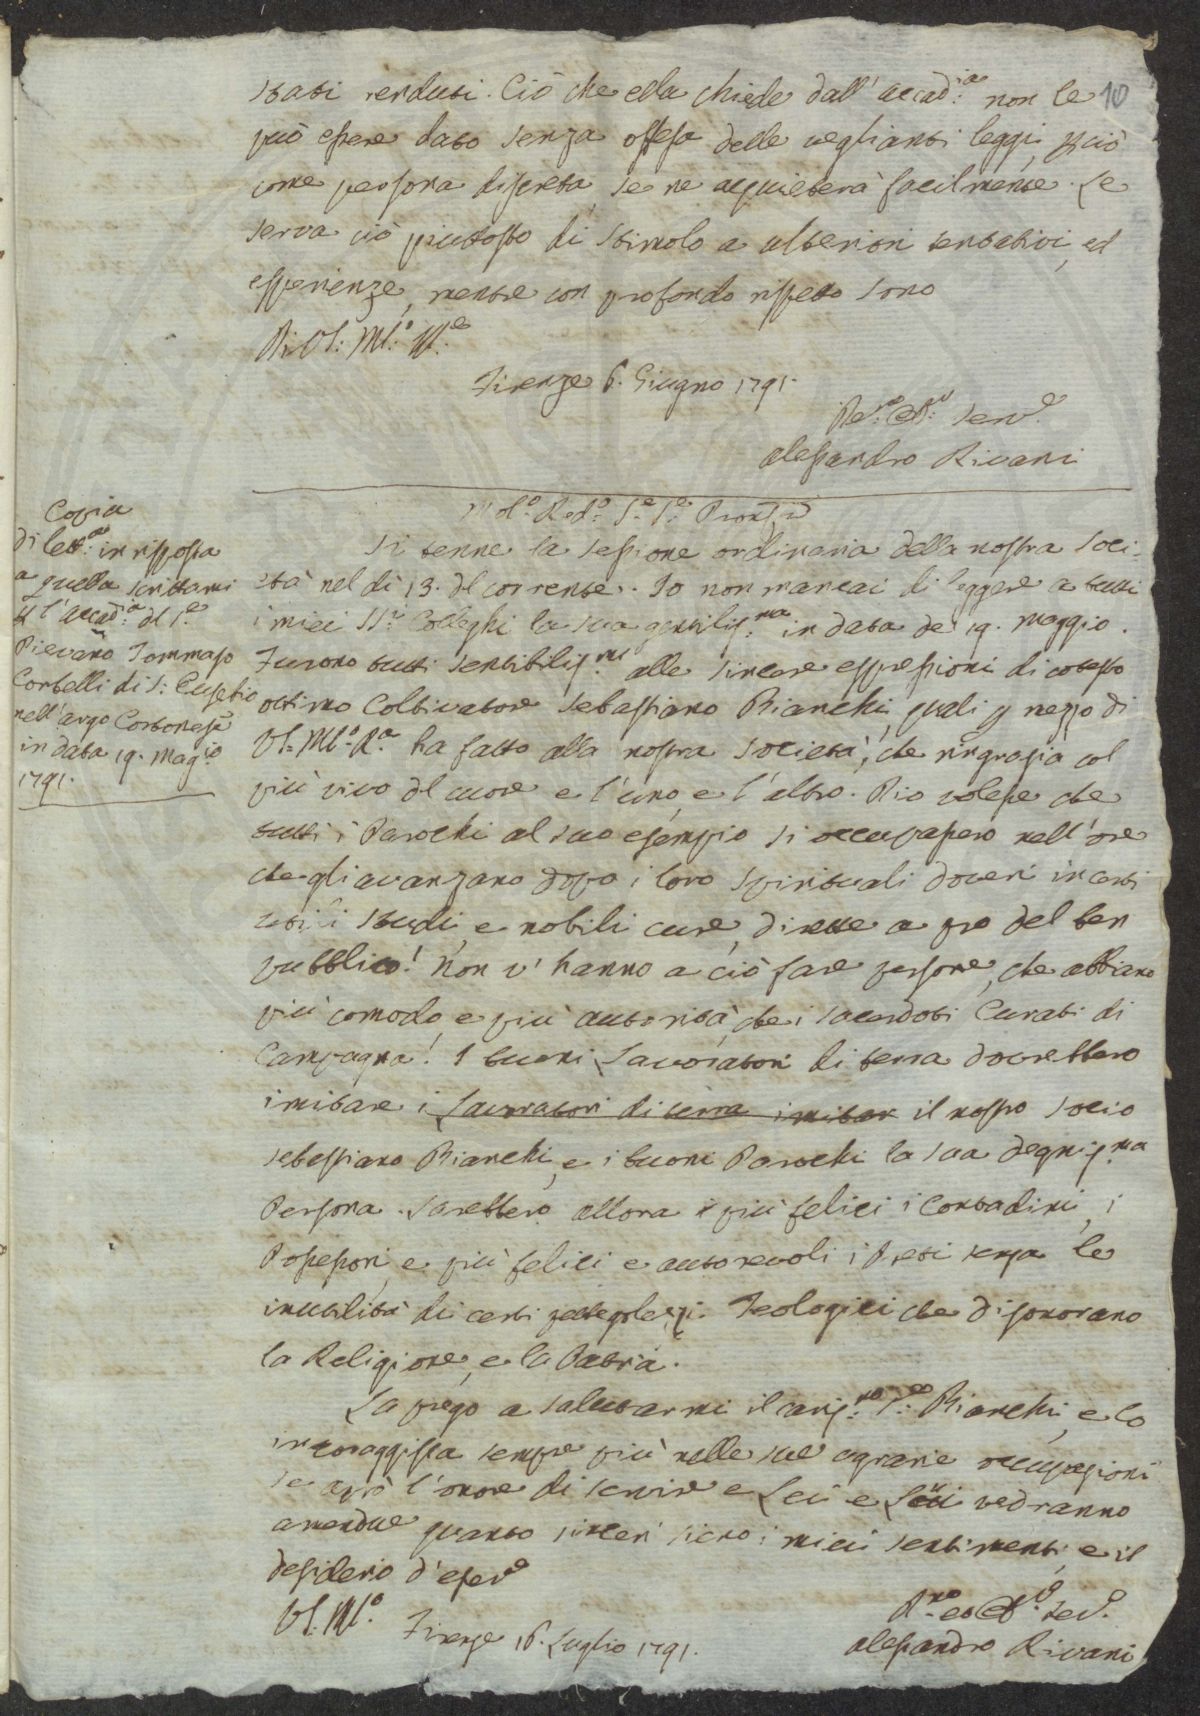 stati renduti. Ciò che ella chiede dall' accad:ia non le 10
può essere dato senza offesa delle veglianti leggi, p ciò
come persona discreta, se ne acquieterà facilmente. Le
serva ciò piuttosto di stimolo a ulteriori tentativi, ed
esperienze, mentre con profondo rispetto sono
Di VS: Ml:o Ill:e
Firenze 6. Giugno 1791.
Dev:o Ob: Serv:e
Alessandro Rivani
Mol:o Red:o S:e S:e Pron
Copia
di lett:a in risposta
a quella scrittami
p l'accad:ia del S:e
Pievano Tommaso
Corbelli di S: Eusebio
nell'
in data 19. Mag:o
1791.
Si tenne la sessione ordinaria della nostra Soci-
età nel dì 13. del corrente. Io non mancai di leggere a tutti
i miei SS:i Colleghi la sua gentiliss:ma in data de 19. Maggio.
Furono tutti sensibiliss:mi alle sincere espressioni di cotesto
ottimo Coltivatore Sebastiano Bianchi, quali p mezzo di
VS: Ml:o R:a ha fatto alla nostra Società, che ringrazia col
più vivo del cuore e l'uno, e l'altro. Dio volesse che
tutti i Parochi al suo esempio si occupassero nell'ore
che gli avanzano dopo i loro spirituali doveri in certi
utili studi, e nobili cure, dirette a pro del ben
pubblico! Non v'hanno a ciò fare persone, che abbiano
più comodo, e più autorità che i sacerdoti Curati di
Campagna! I buoni Lavoratori di terra dovrebbero
imitare i Lavoratori di terra imitar il nostro Socio
Sebastiano Bianchi, e i buoni Parochi la sua degniss:ma
Persona. Sarebbero allora più felici i Contadini, i
Possessori, e più felici e autorevoli i Preti senza le
inutilità di certi pettegolezzi Teologici che disonorano
la Religione, e la Patria.
La prego a salutarmi il cariss:mo S:e Bianchi, e lo
incoraggisca sempre più nelle sue agrarie occupazioni
se avrò l'onore di servire e Lei e Lui vedranno
amendue quanto sinceri sieno i miei sentimenti, e il
desiderio d'esser
VS: Ml:o
Firenze 16. Luglio 1791.
Serv:e
Alessandro Rivani